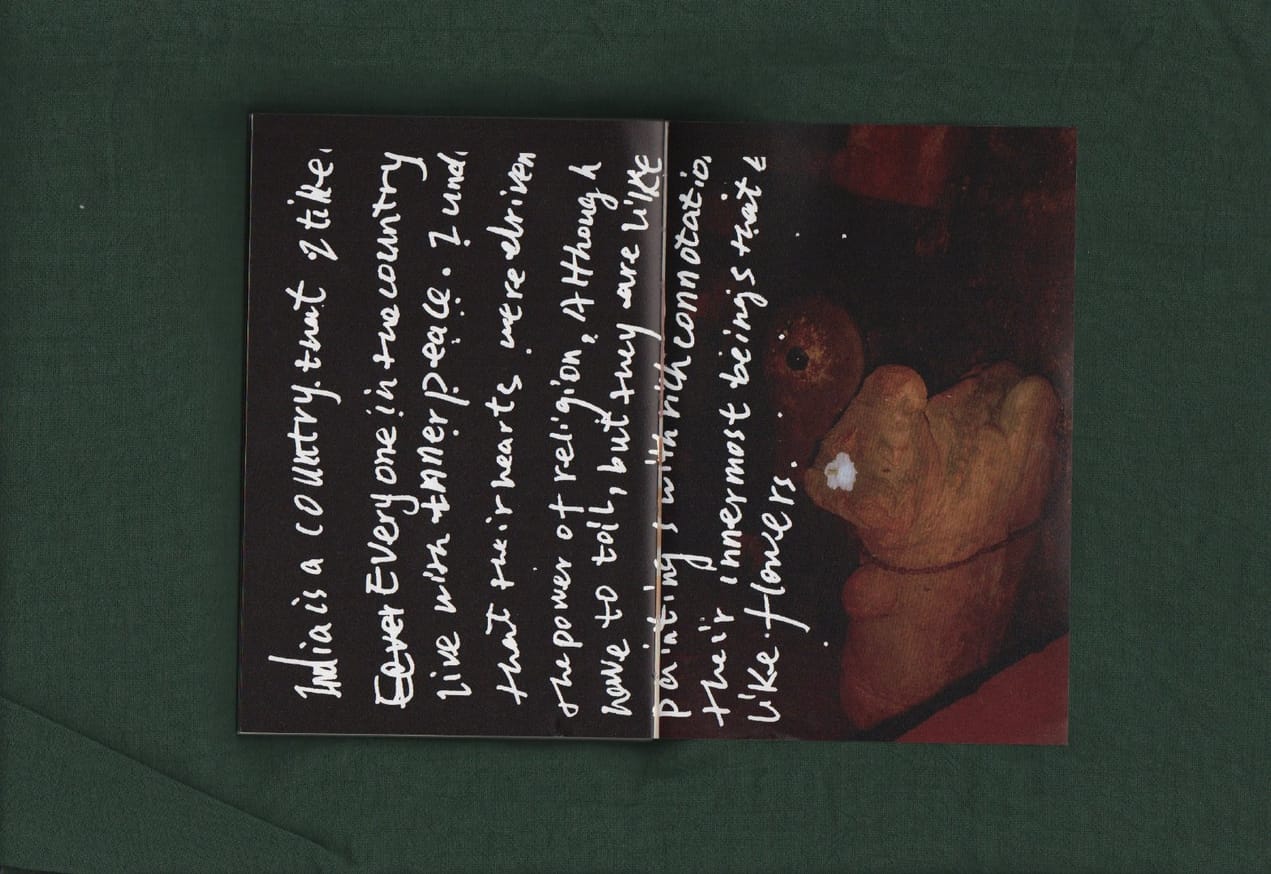 India is a country that I like.
Every one in the country
live with inner peace. I und.
that their hearts were driven
the power of religion. Although
have to toil, but they are like
paintings with rich connotatio.
their innermost beings that
like flowers.